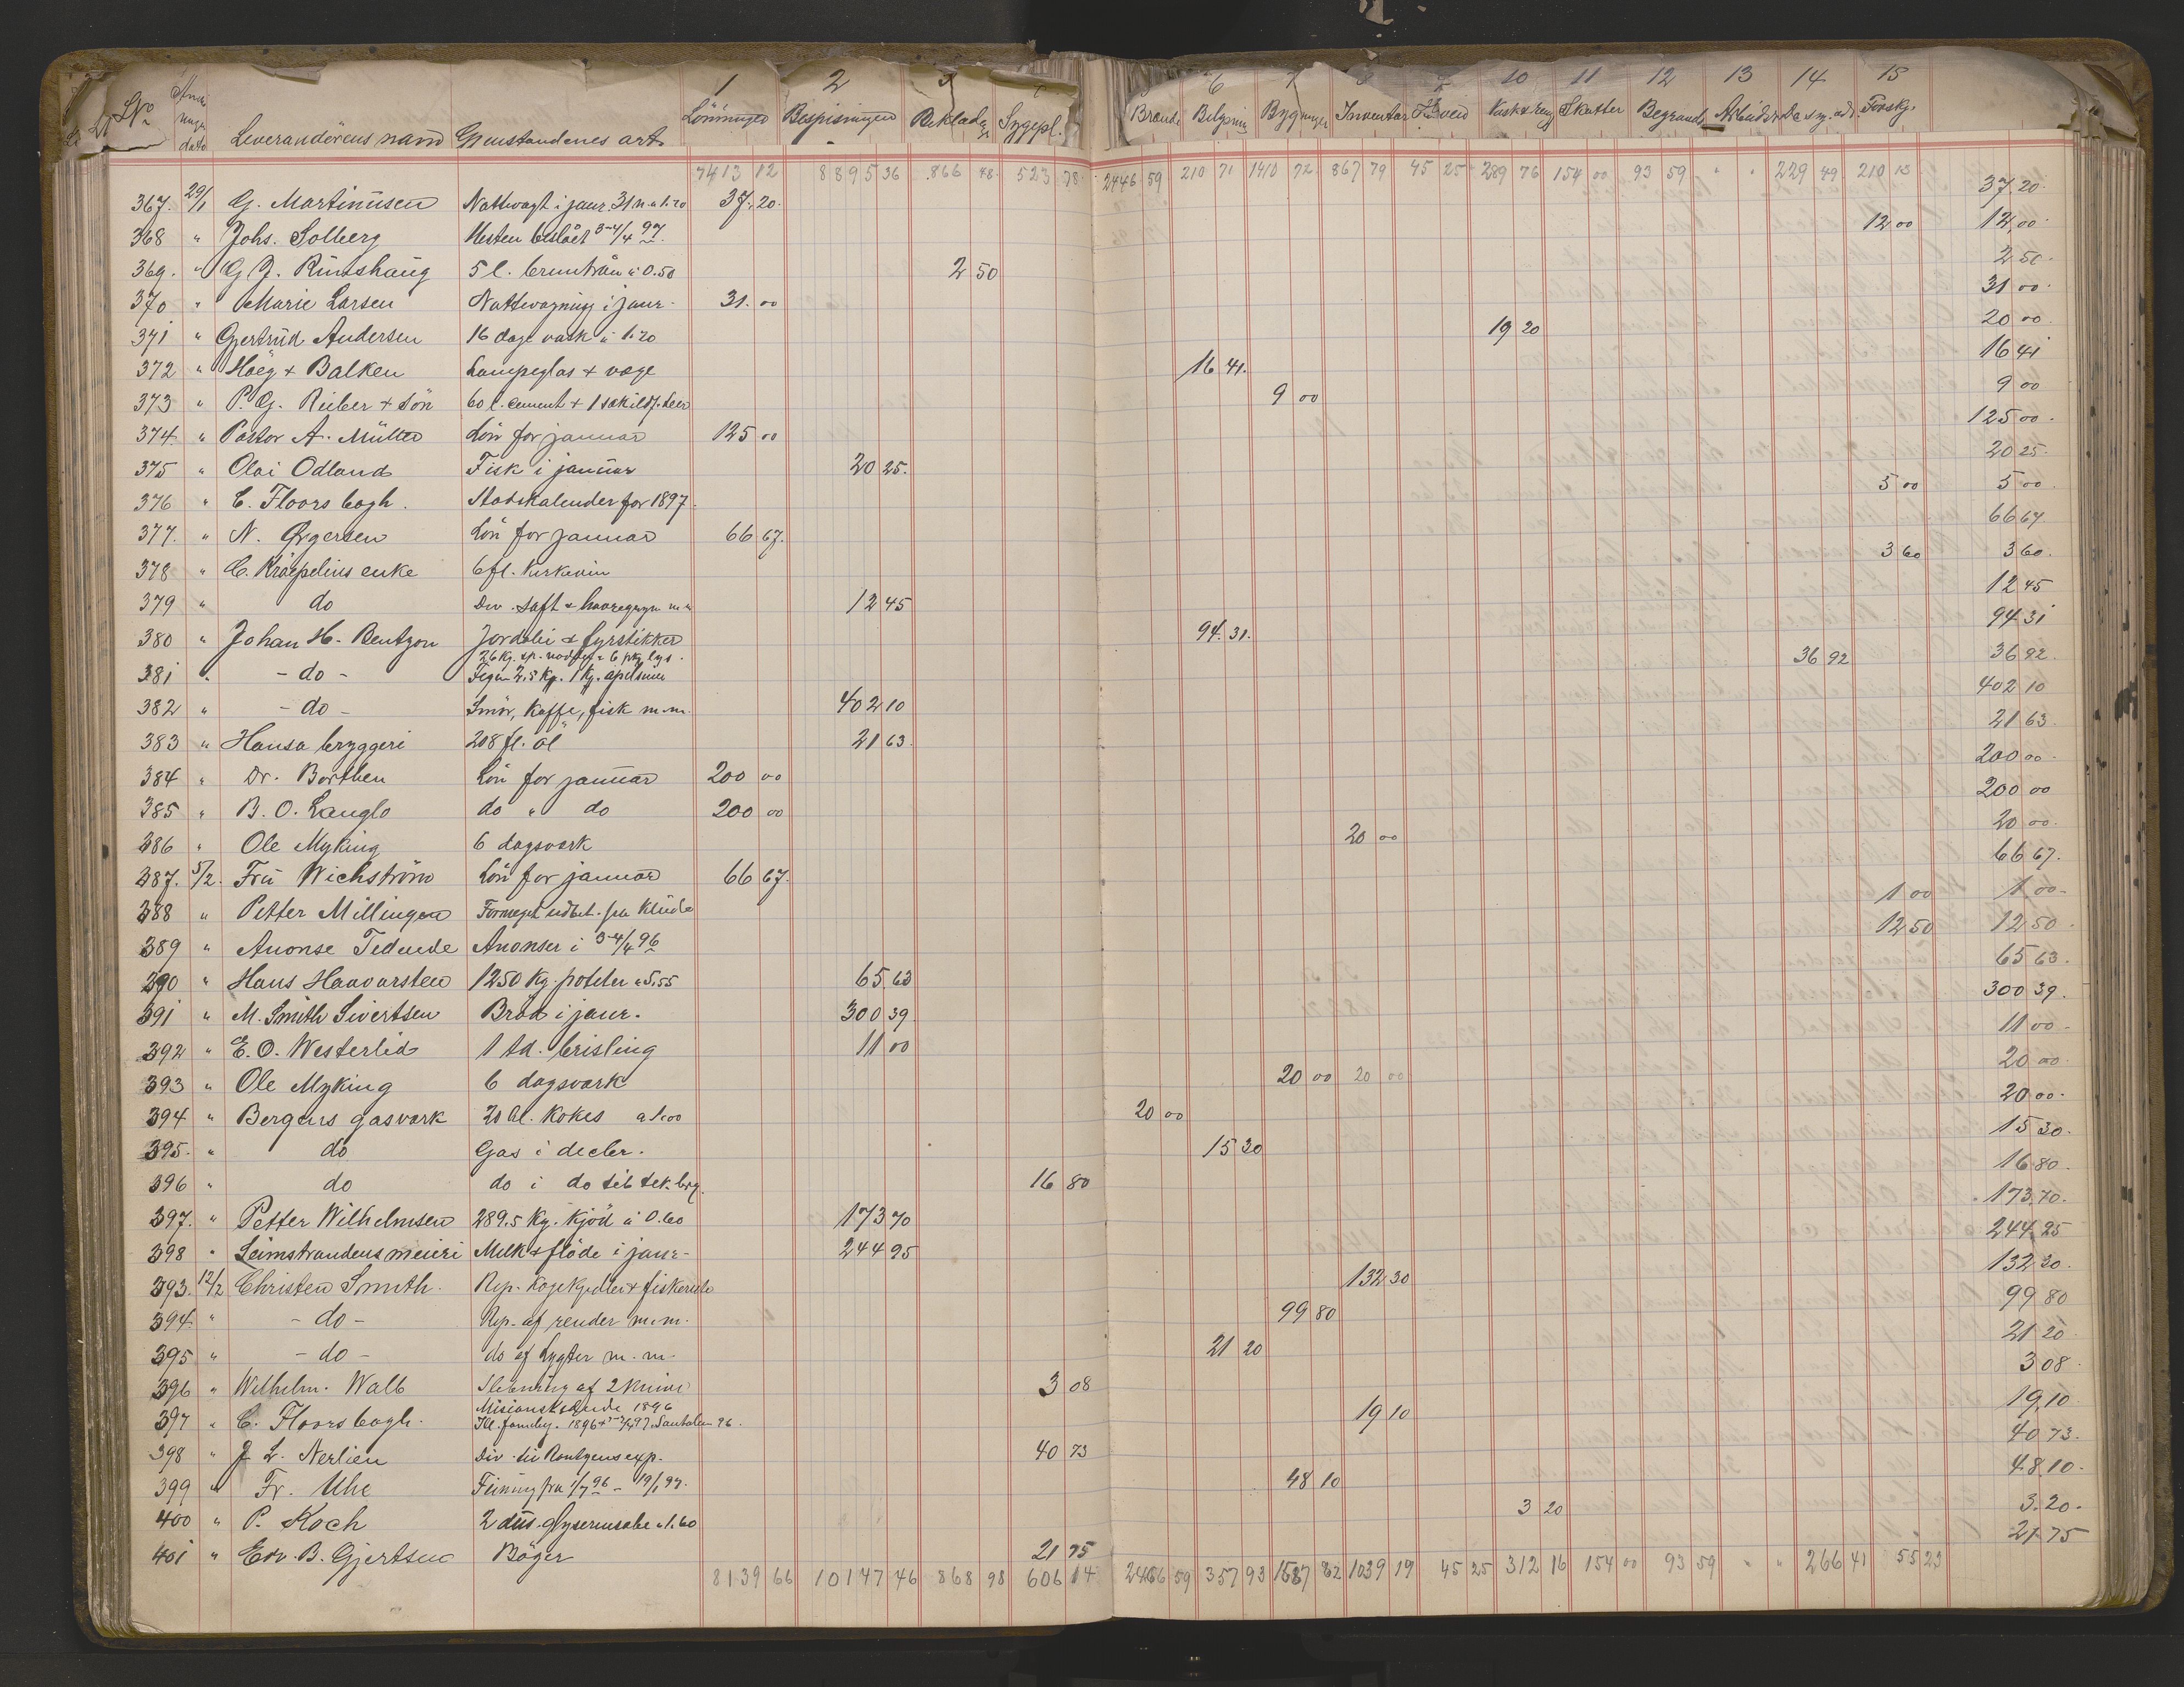 1 2 3 6 7 8 9 10 11 12 13 14 15
No dato Leverandörens navn Gjenstandenes art Lönninger Bespisningen Beklædn. Sygepl. Brænde Belysning Bygninger Inventar Skatter Begravels
7413 12 8895 36 866 48 523 78 2446 59 210 71 1410 72 867 79 45 25 289 76 154 00 93 59 " " 229 49 210 13
367. 29/1 G. Martinusen Nattvagt i janr. 31 n. a 1.20 37.20 37.20
368 " Johs. Solberg Hesten beslået 3-4/4 97. 12 00 12,00
369. " G. J. Rundshaug 5 l. bruntran a 0.50 2 50 2 50
370 " Marie Larsen Nattvagning i janr. 31.00 31 00
371 " Gjertrud Andersen 16 dage vask a 1.20 19 20 20 00
372 " Höeg + Balken Lampeglas + væge 16 41. 16 41
373 " P. G. Rieber + Sön 60 l. cement + 1 sæk ildf. leer 9 00 9 00
374. " Pastor A. Müller Lön for januar 125 00 125 00
375 " Olai Odland Fisk i januar 20 25. 20 25
376 " C. Floors bogh. Statskalender for 1897. 5 00 5 00
377. " N. Grgersen Lön for januar 66 67. 66 67
378 " C. Kræpelius enke 6 fl. kirkevin 3 60 3 60
379 " do Div. saft + havregryn m.m 12 45 12 45
380 " Johan H. Bentzon Jordolie & fyrstikker 94.31. 94 31
381 " - do - 26 kg. 6 pk. lys. 2,5 kg. 1 kg. apelsiner 36 92 36 92
382 " - do - Smör, kaffe, fisk m.m. 402 10 402 10
383 " Hansa bryggeri 208 fl. öl 21 63 21 63
384 " Dr. Borthen Lön for januar 200 00 200 00
385 " B. O. Langlo do " do 200 00 200 00
386 " Ole Myking 6 dagsverk 20 00 20 00
387. 5/2. Fru Wichström Lön for januar 66 67. 66 67.
388 " Petter Millingen udbet. fra 1 00 1 00
389 " Anonse Tidende Anonser i 3-4/4 96 12 50 12 50
390 " Hans Haavarsten 1250 kg. poteter a 5.55 65 63 65 63
391 " M. Smith Sivertsen Bröd i janr. 300 39 300 39.
392 " E. O. Westerlid 1 td. brisling 11 00 11 00
393 " Ole Myking 6 dagsverk 20 00 20 00 20 00
394 " Bergens gasverk 20 hl. kokes a 1.00 20 00 20 00
395. " do Gas i decbr. 15 30 15 30.
396 " do do i do til 16 80 16 80
397. " Petter Wilhelmsen 289.5 kg. kjöd a 0.60 173 70 173.70
398 " Leimstrandens meieri Melk + flöde i janr. 244 95 244 95
393. 12/2 Christen Smith. Rep. kogekjedler + 132 30 132 30
394. " - do - Rep. af render m.m. 99 80 99 80
395 " - do - do af lygter m.m. 21 20 21 20
396 " Wilhelm. Walb Slibning af 2 knive 3 08 3 08
397 " C. Floors bogh. 1896 Ill. familiej. 1896 + 97. 96. 19 10 19.10
398 " J. L. Nerlien Div. til Rontgens exp. 40 73 40 73.
399 " Fr. Uhe Feining fra 1/7 96 - 19/1 97. 48 10 48.10
400 " P. Koch 2 dus. glyserinsæbe a 1.60 3 20 3.20
401 " Edv. B. Gjertsen Böger 21 75 21.75
8139 66 10147 46 868 98 606 14 2466 59 357 93 1587 82 1039 19 45 25 312 16 154 00 93 59 " " 266 41 55 23